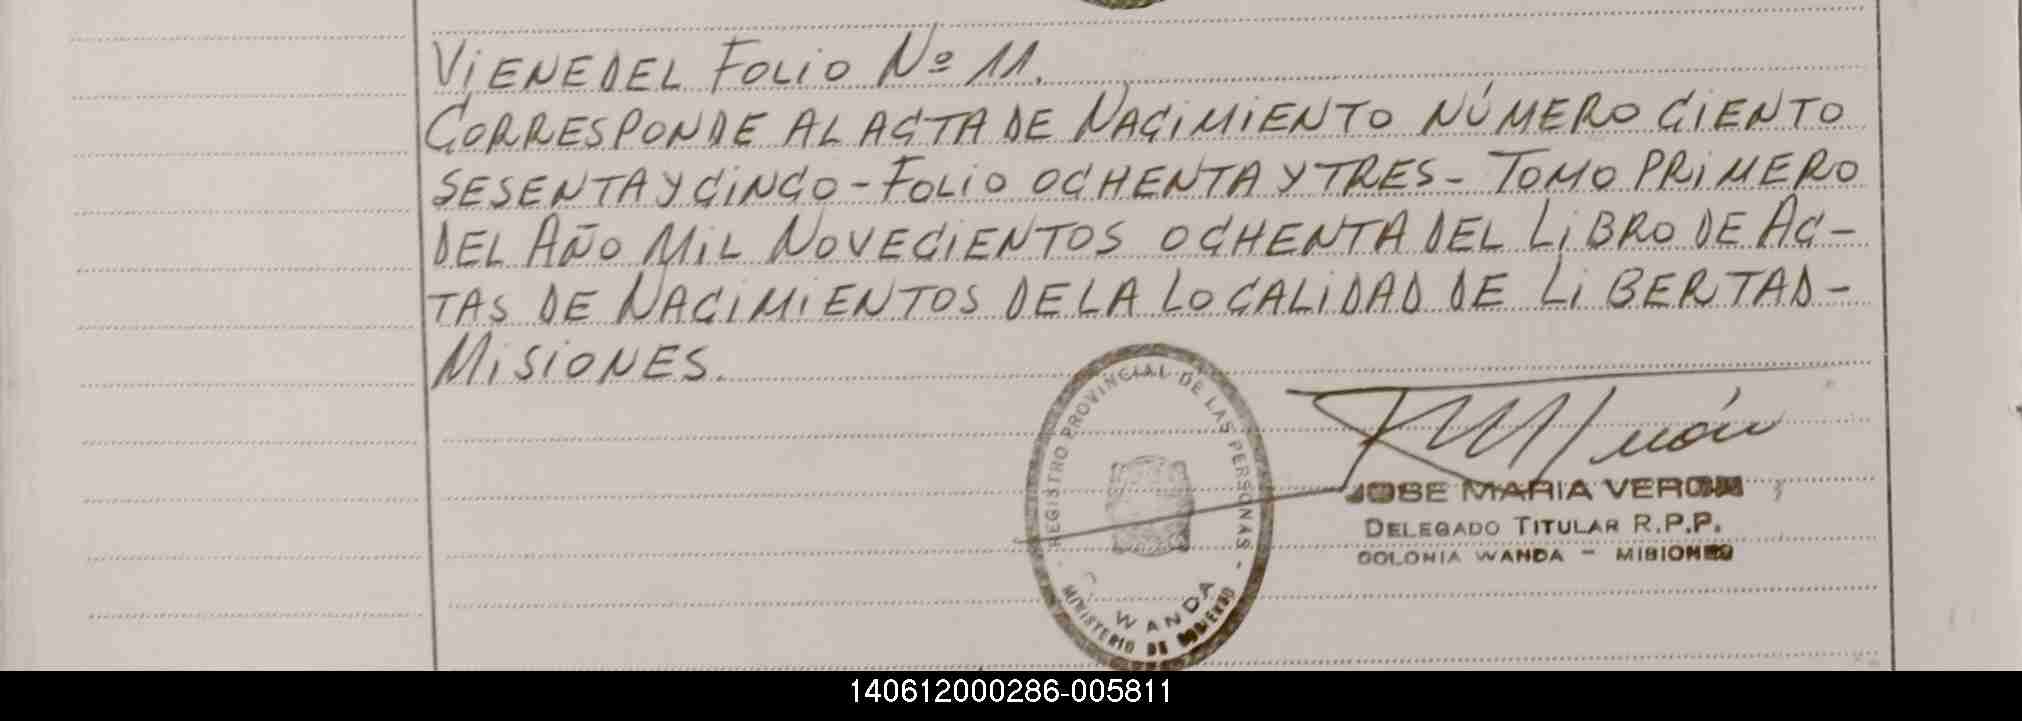 VIENE DEL FOLIO Nº 11.
CORRESPONDE AL ACTA DE NACIMIENTO NÚMERO CIENTO
SESENTA Y CINCO - FOLIO OCHENTA Y TRES - TOMO PRIMERO
DEL AÑO MIL NOVECIENTOS OCHENTA DEL LIBRO DE AC-
TAS DE NACIMIENTOS DE LA LOCALIDAD DE LIBERTAD -
MISIONES.
REGISTRO PROVINCIAL DE LAS PERSONAS
WANDA
MINISTERIO DE GOBIERNO
JOSE MARIA VERON
DELEGADO TITULAR R.P.P.
COLONIA WANDA - MISIONES
140612000286-005811